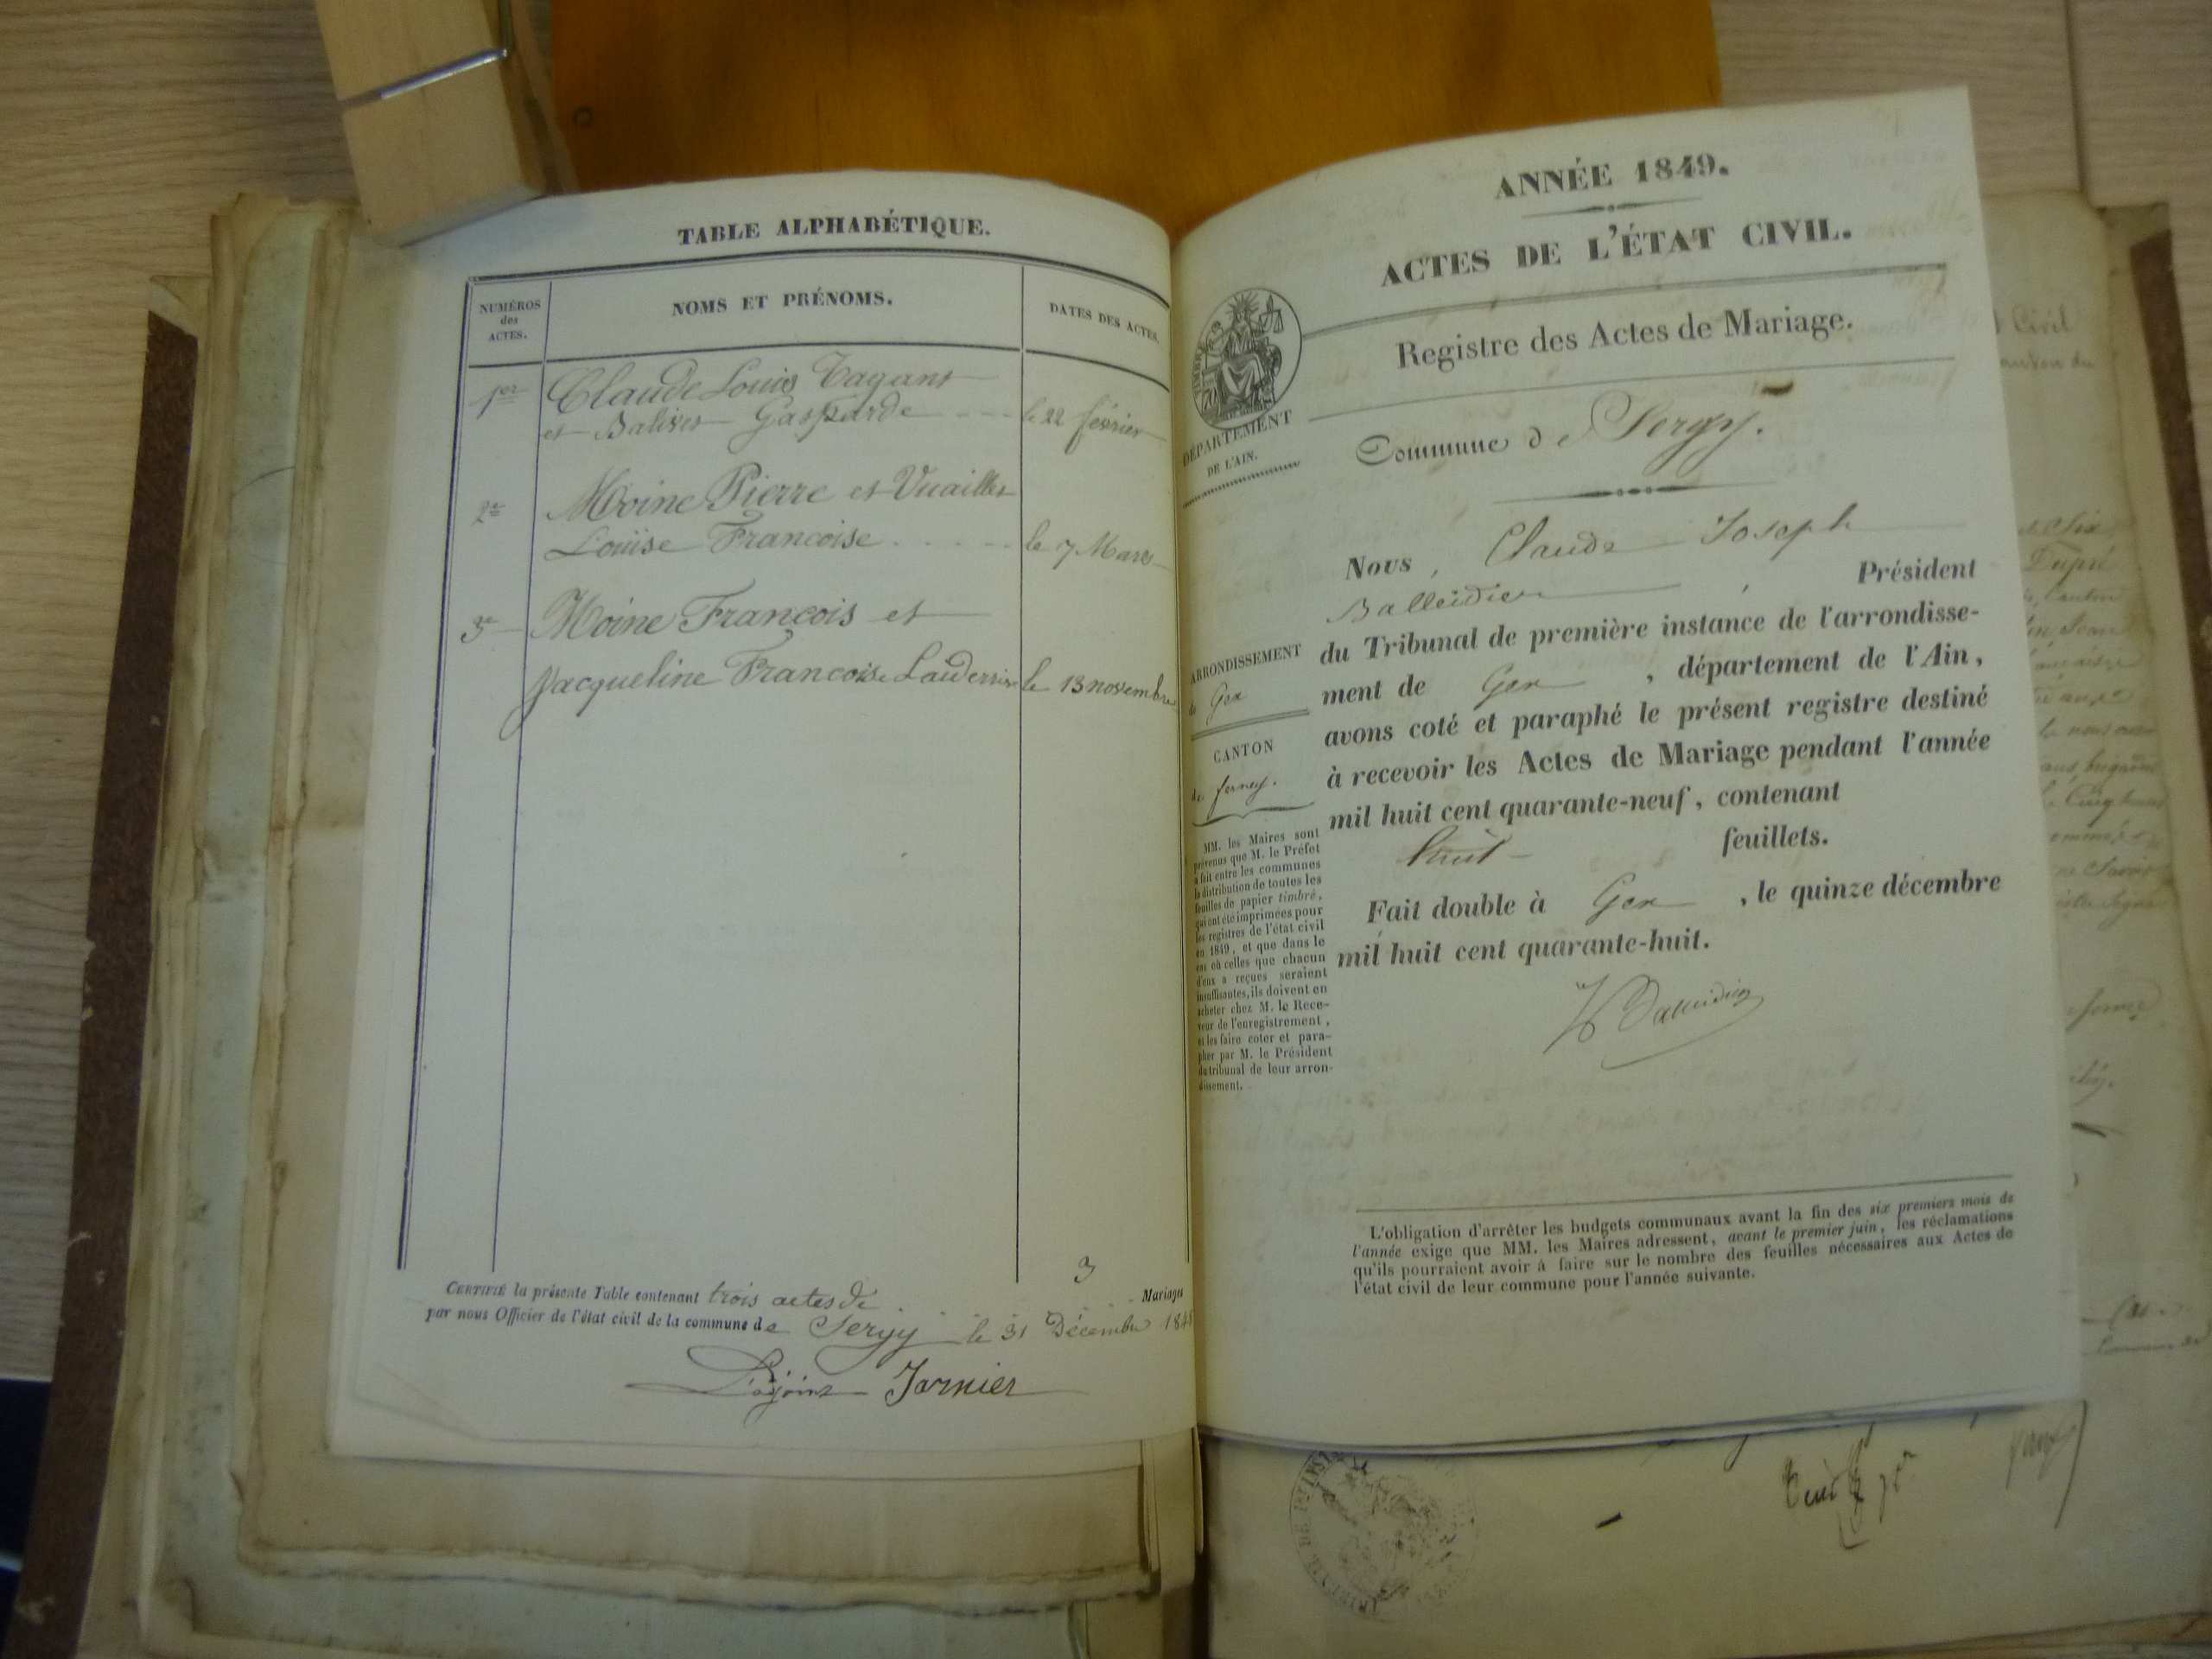 TABLE ALPHABÉTIQUE.
NUMÉROS
des
ACTES.
NOMS ET PRÉNOMS.
DATES DES ACTES.
1er Claude Louis
et Gasparde le 22 février
2e Moine Pierre et Vuaillet
Louise Francoise le 7 Mars
3e Moine François et
Jacqueline Francoise le 13 novembre
3
CERTIFIÉ la présente Table contenant trois actes de Mariages
par nous Officier de l'état civil de la commune de Sergy le 31 Décembre
L'adjoint Jarnier
ANNÉE 1849.
ACTES DE L'ÉTAT CIVIL.
Registre des Actes de Mariage.
TIMBRE
70
DÉPARTEMENT
DE L'AIN.
Commune de Sergy.
Nous, Claude Joseph
Balleidier, Président
du Tribunal de première instance de l'arrondisse-
ment de Gex, département de l'Ain,
avons coté et paraphé le présent registre destiné
à recevoir les Actes de Mariage pendant l'année
mil huit cent quarante-neuf, contenant
huit feuillets.
Fait double à Gex, le quinze décembre
mil huit cent quarante-huit.
ARRONDISSEMENT
de Gex
CANTON
de ferney.
MM. les Maires sont
prévenus que M. le Préfet
a fait entre les communes
la distribution de toutes les
feuilles de papier timbré,
qui ont été imprimées pour
les registres de l'état civil
en 1849, et que dans le
cas où celles que chacun
d'eux a reçues seraient
insuffisantes, ils doivent en
acheter chez M. le Rece-
veur de l'enregistrement,
et les faire coter et para-
pher par M. le Président
du tribunal de leur arron-
dissement.
L'obligation d'arrêter les budgets communaux avant la fin des six premiers mois de
l'année exige que MM. les Maires adressent, avant le premier juin, les réclamations
qu'ils pourraient avoir à faire sur le nombre des feuilles nécessaires aux Actes de
l'état civil de leur commune pour l'année suivante.